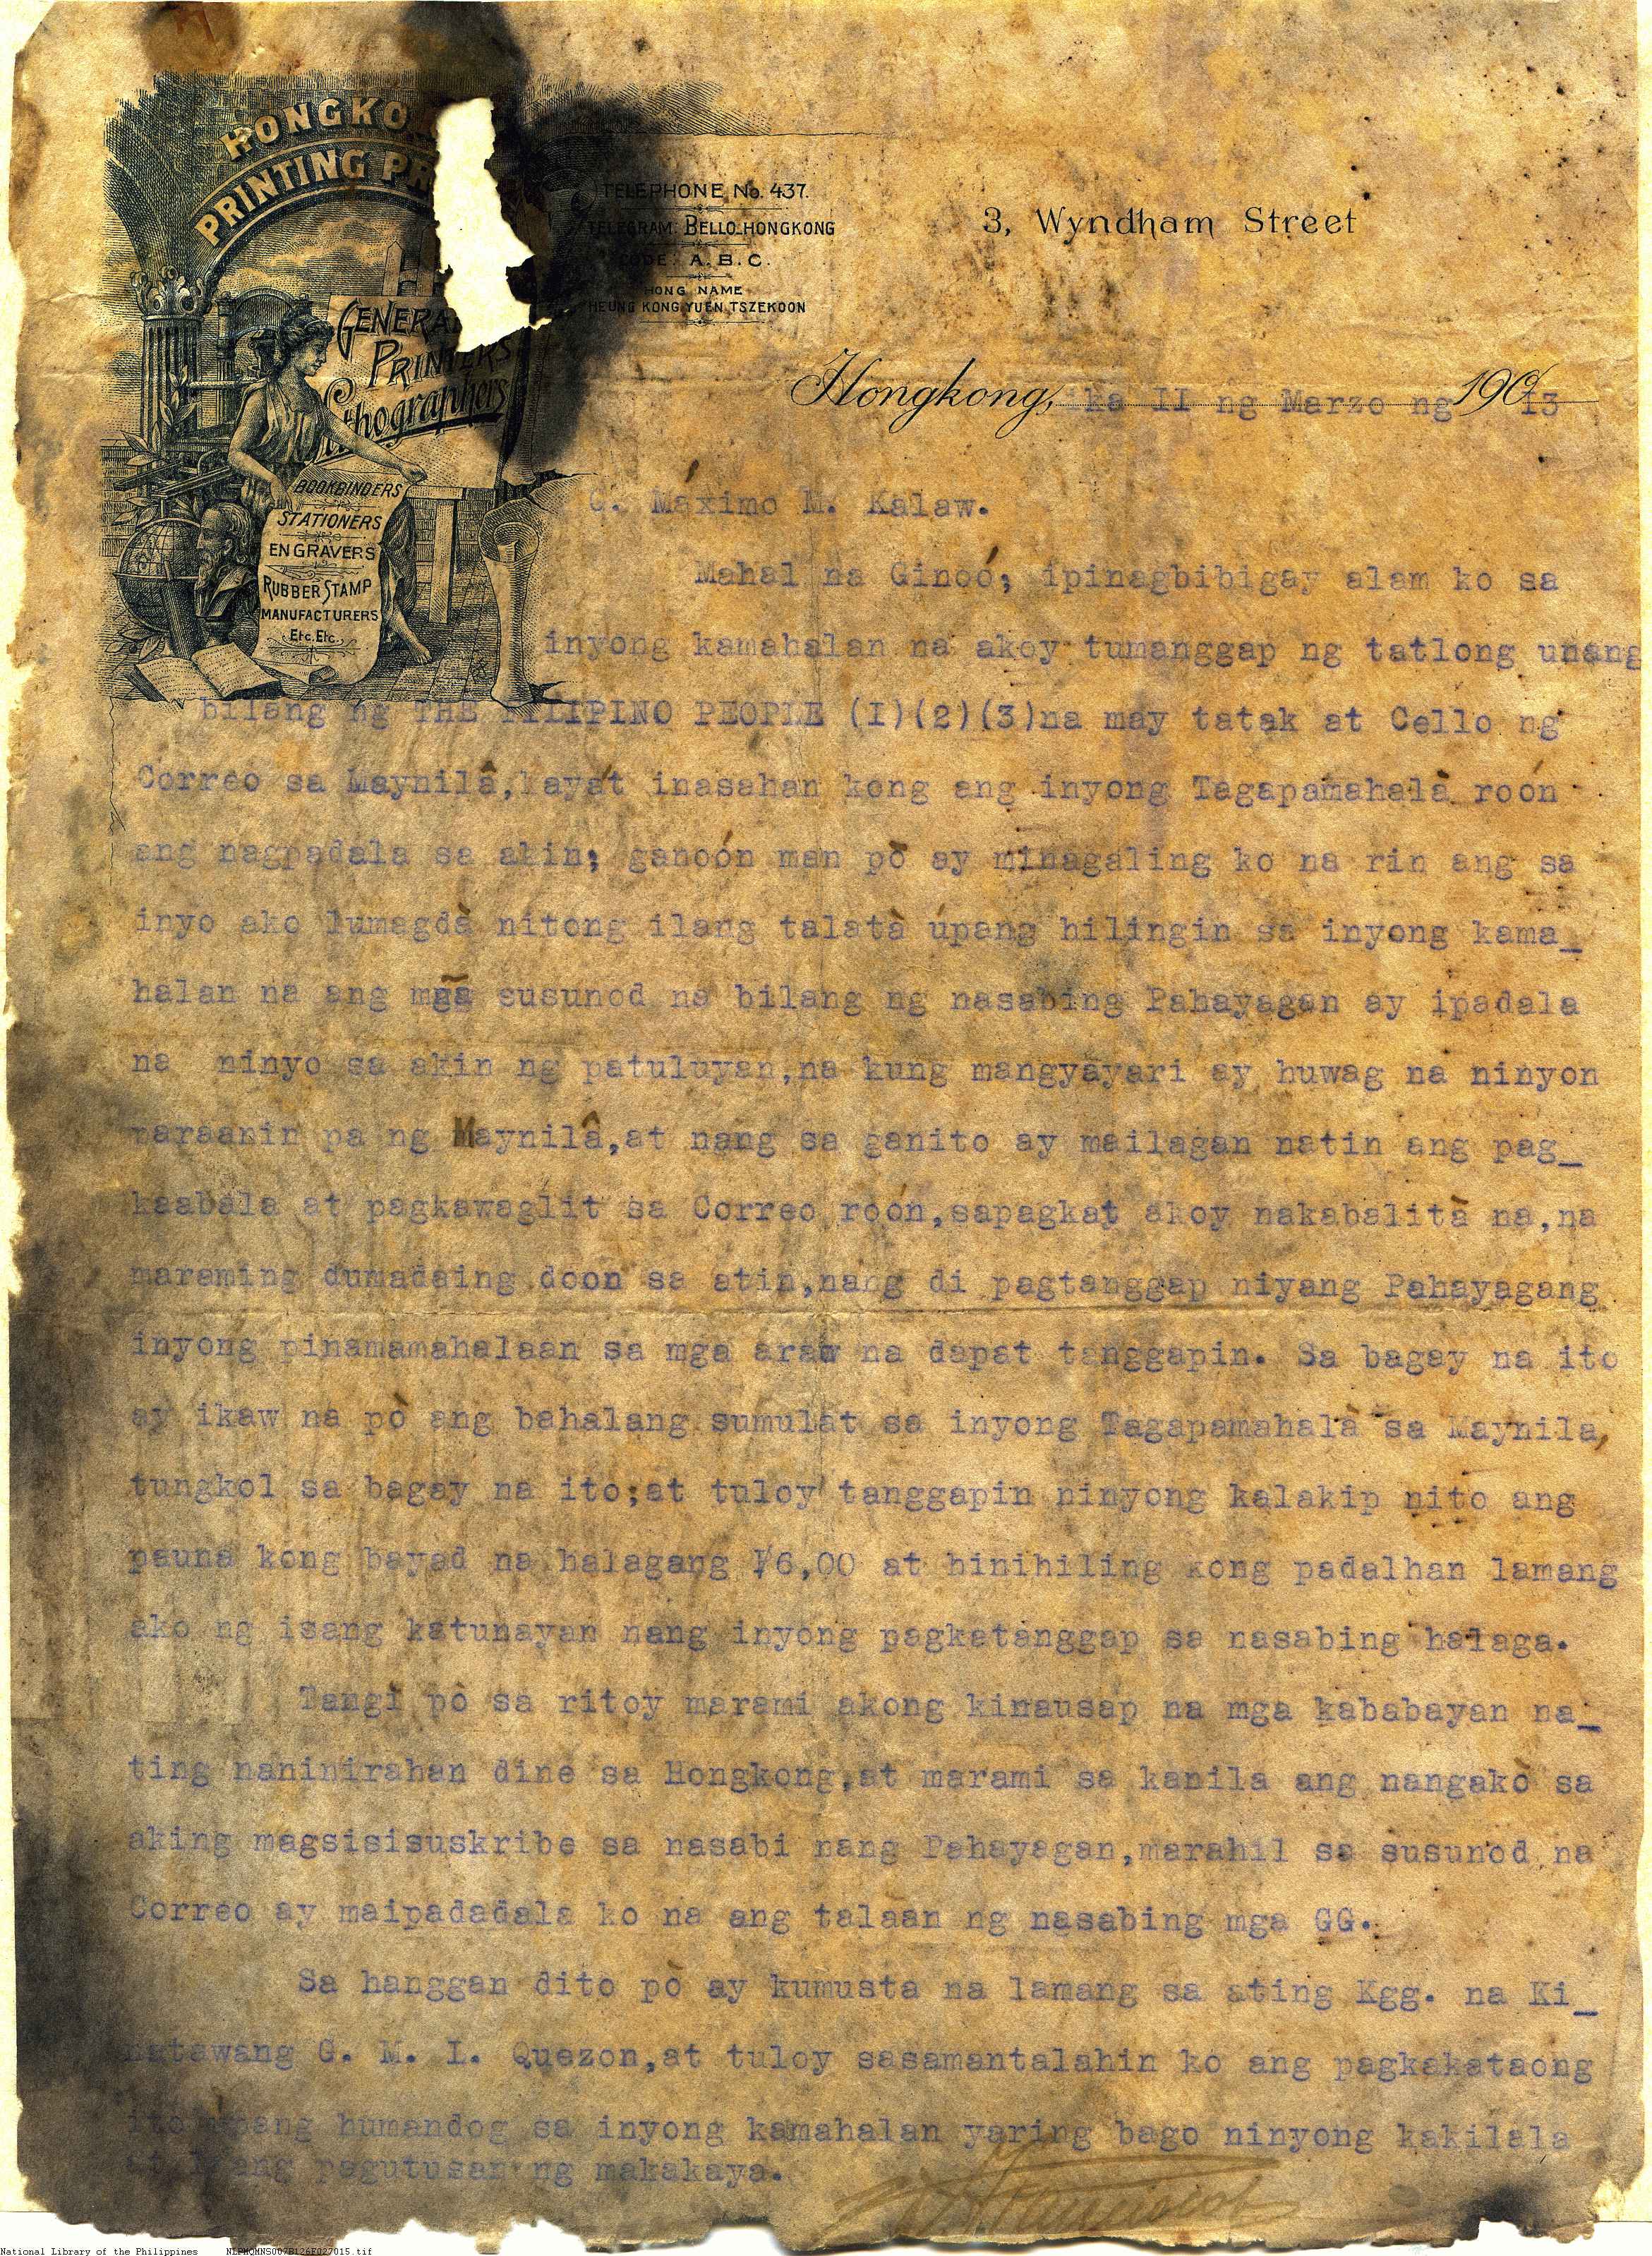 HONGKO
PRINTING PR
TELEPHONE No. 437.
TELEGRAM: BELLO-HONGKONG
CODE: A.B.C.
HONG NAME
HEUNG KONG YUEN TSZEKOON
3, Wyndham Street
GENERAL
PRINTERS
Lithographers
BOOKBINDERS
STATIONERS
ENGRAVERS
RUBBER STAMP
MANUFACTURERS
Etc. Etc.
Hongkong, ika II ng Marzo ng 190 13
G. Máximo M. Kalaw.
Mahal na Ginoó; ipinagbibigay alam ko sa
inyong kamahalan na akoy tumanggap ng tatlong unang
bilang ng THE FILIPINO PEOPLE (I)(2)(3)na may tatak at Cello ng
Correo sa Maynilâ,kayat inasahan kong ang inyong Tagapamahalà roón
ang nagpadala sa akin; ganoón man pô ay minagaling ko na rin ang sa
inyo ako lumagdà nitong ilang talatà úpang hilingin sa inyong kama_
halan na ang mg̃a susunod na bilang ng nasabing Pahayagan ay ipadala
na ninyo sa akin ng patuluyan,na kung mangyayari ay huwag na ninyon
paraanin pa ng Maynilâ,at nang sa ganito ay mailagan natin ang pag_
kaabala at pagkawaglit sa Correo roón,sapagkat akoy nakabalità na,na
maraming dumadaing doon sa atin,nang di pagtanggap niyang Pahayagang
inyong pinamamahalaan sa mga araw na dapat tanggapin. Sa bagay na ito
ay ikaw na pò ang bahalang sumulat sa inyong Tagapamahalà sa Maynila,
tungkol sa bagay na ito;at tuloy tanggapin ninyong kalakip nito ang
pauna kong bayad na halagang ₱6,00 at hinihiling kong padalhan lamang
ako ng isang katunayan nang inyong pagkatanggap sa nasabing halaga.
Tangì pò sa ritoy marami akong kinausap na mga kababayan na_
ting naninirahan dine sa Hongkong,at marami sa kanila ang nangakò sa
aking magsisisuskribe sa nasabi nang Pahayagan,marahil sa susunod na
Correo ay maipadadala ko na ang talaan ng nasabing mga GG.
Sa hanggan dito pò ay kumusta na lamang sa ating Kgg. na Ki_
natawang G. M. L. Quezon,at tuloy sasamantalahin ko ang pagkakataong
ito upang humandog sa inyong kamahalan yaring bago ninyong kakilala
at pagutusan ng makakaya.